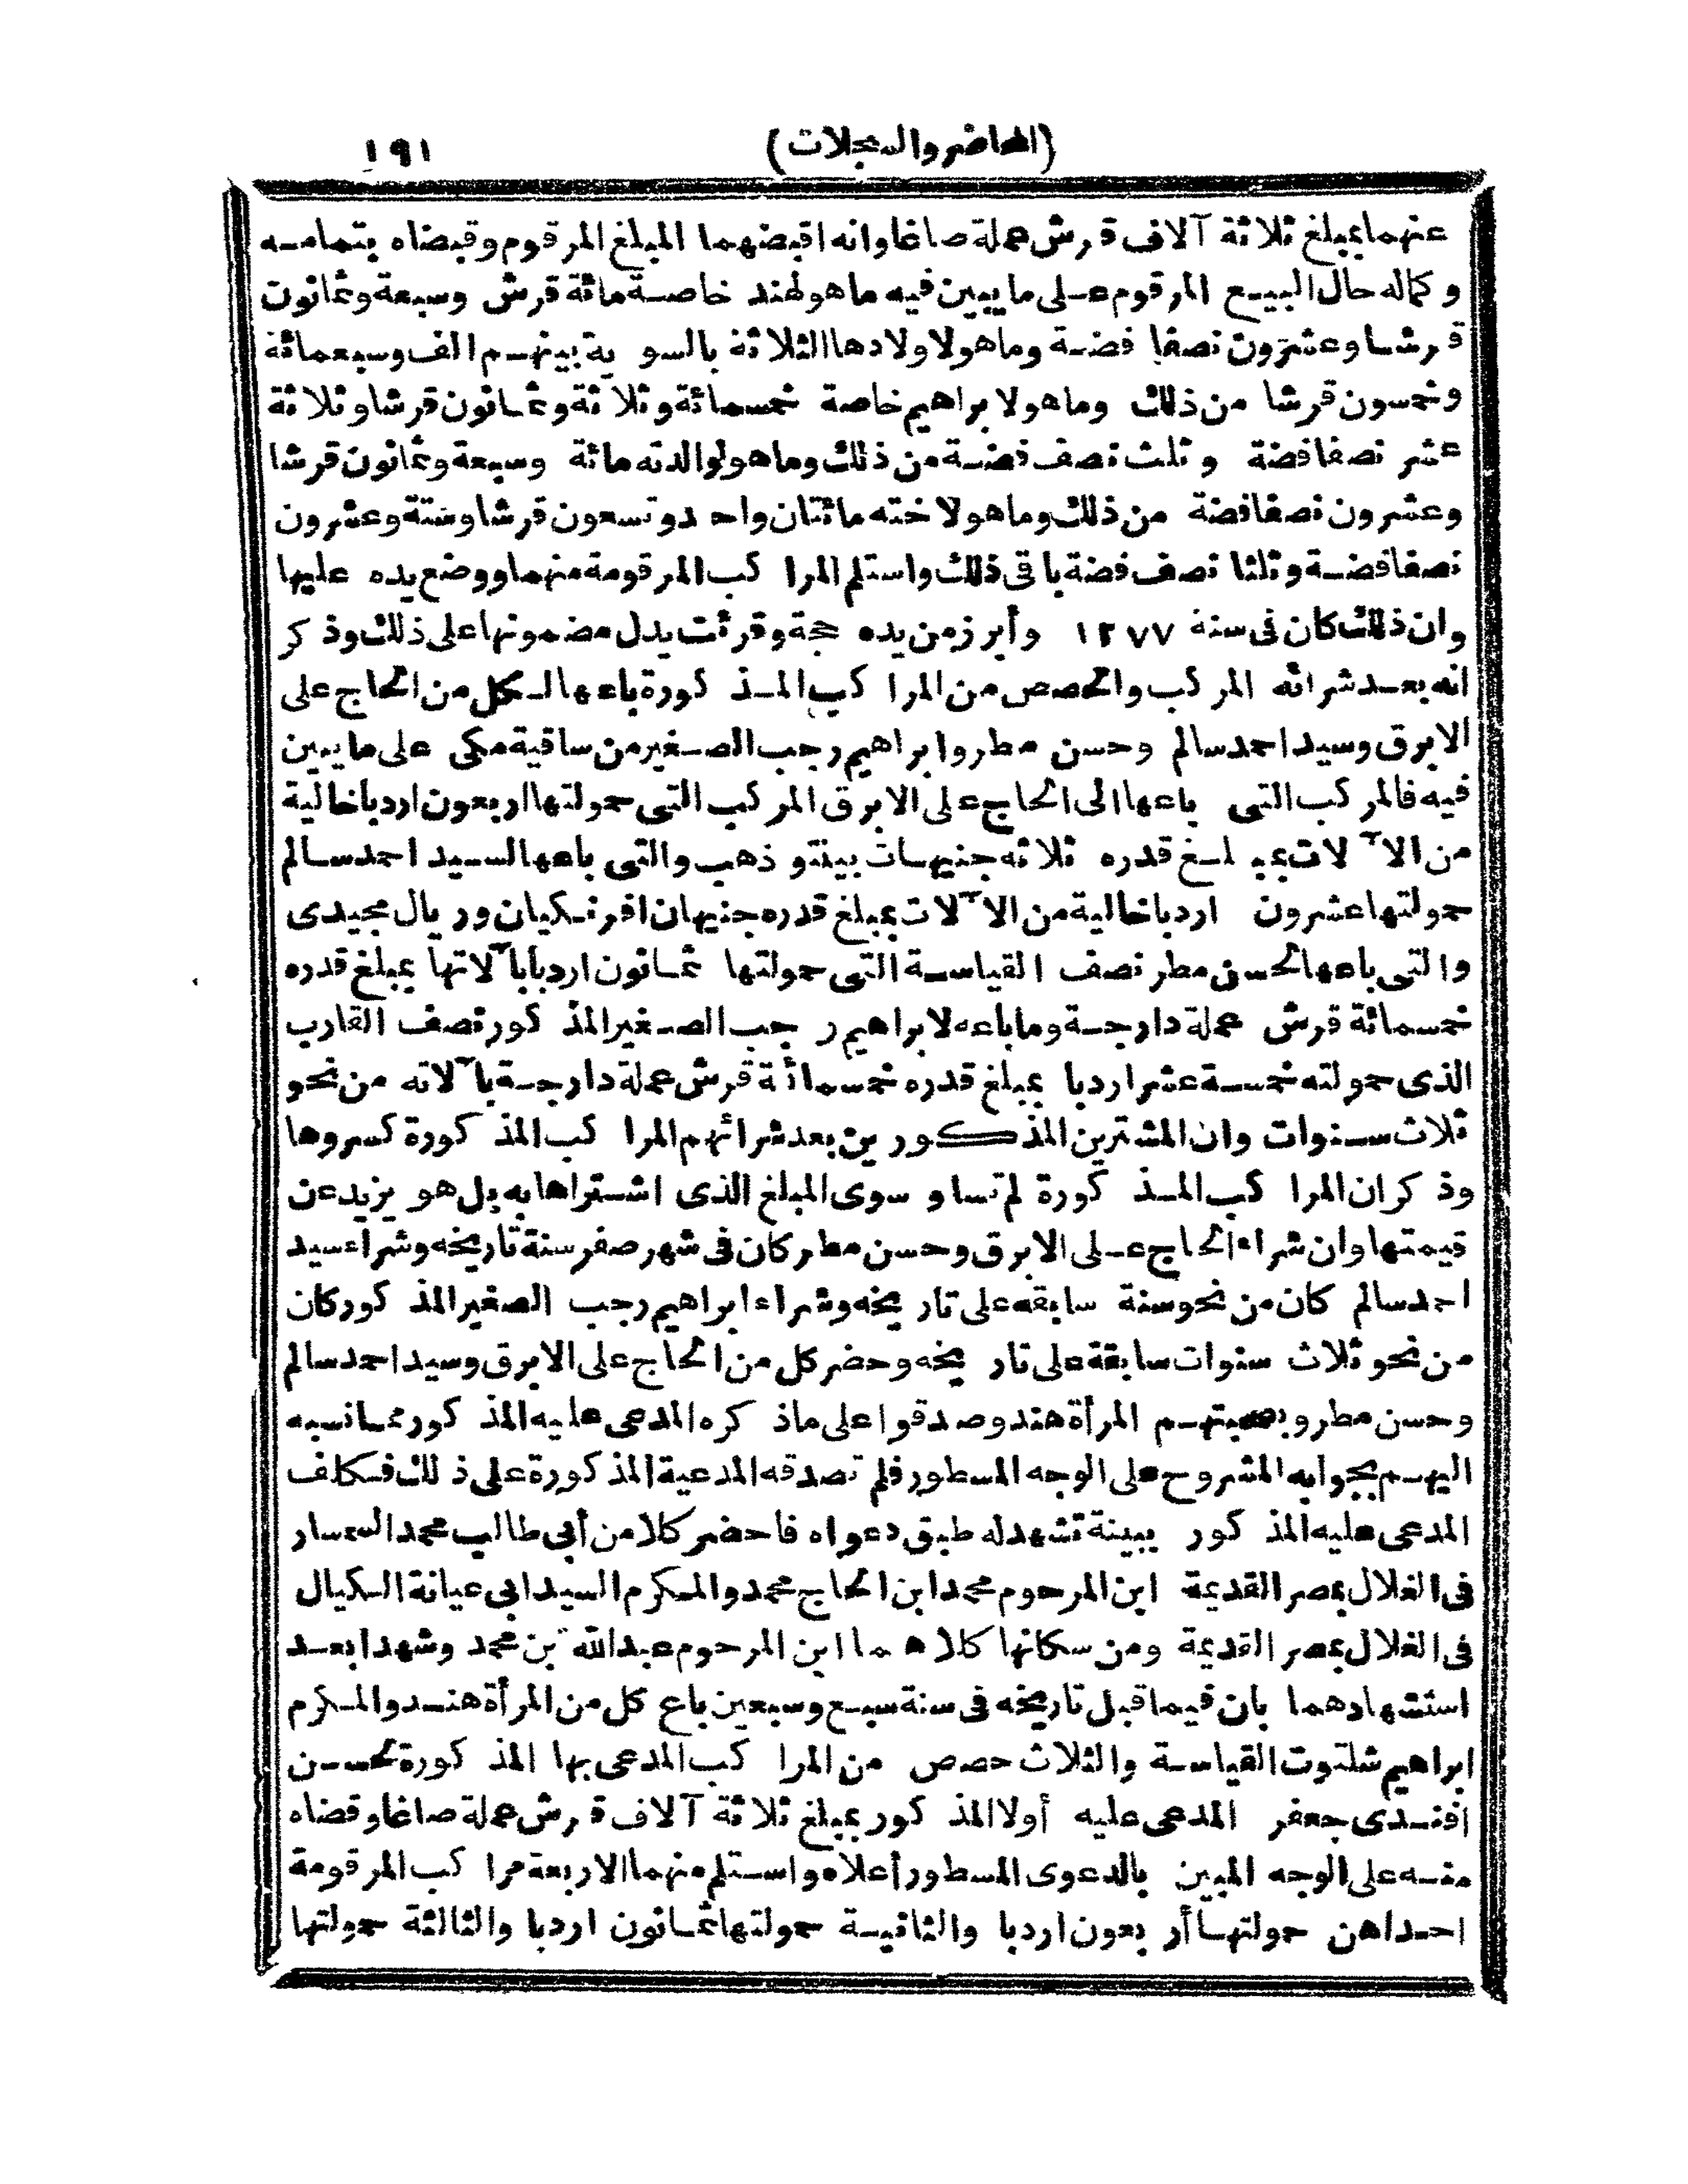 (المحاضر والسجلات) ١٩١
عنهما بمبلغ ثلاثة آلاف قرش عملة صاغا وانه اقبضهما المبلغ المرقوم وقبضاه بتمامه
وكماله حال البيع المرقوم على ما يبين فيه ما هو لهند خاصة مائة قرش وسبعة وثمانون
قرشا وعشرون نصفا فضة وما هو لاولادها الثلاثة بالسوية بينهم الف وسبعمائة
وخمسون قرشا من ذلك وما هو لابراهيم خاصة خمسمائة وثلاثة وثمانون قرشا وثلاثة
عشر نصفا فضة وثلث نصف فضة من ذلك وما هو لوالدته مائة وسبعة وثمانون قرشا
وعشرون نصفا فضة من ذلك وما هو لاخته مائتان واحد وتسعون قرشا وستة وعشرون
نصفا فضة وثلثا نصف فضة باقى ذلك واستلم المراكب المرقومة منهما ووضع يده عليها
وان ذلك كان فى سنة ١٢٧٧ وأبرز من يده حجة وقرئت يدل مضمونها على ذلك وذكر
انه بعد شرائه المركب والحصص من المراكب المذكورة باعها لكل من الحاج على
الابرق وسيد احمد سالم وحسن مطر وابراهيم رجب الصغير من ساقية مكى على ما يبين
فيه فالمركب التى باعها الى الحاج على الابرق المركب التى حمولتها اربعون اردبا خالية
من الآلات بمبلغ قدره ثلاثة جنيهات بينتو ذهب والتى باعها السيد احمد سالم
حمولتها عشرون اردبا خالية من الآلات بمبلغ قدره جنيهان افرنكيان وريال مجيدى
والتى باعها لحسن مطر نصف القياسة التى حمولتها ثمانون اردبا بآلاتها بمبلغ قدره
خمسمائة قرش عملة دارجة وما باعه لابراهيم رجب الصغير المذكور نصف القارب
الذى حمولته خمسة عشر اردبا بمبلغ قدره خمسمائة قرش عملة دارجة بآلاته من نحو
ثلاث سنوات وان المشترين المذكورين بعد شرائهم المراكب المذكورة كسروها
وذكر ان المراكب المذكورة لم تساو سوى المبلغ الذى اشتراها به بل هو يزيد عن
قيمتها وان شراء الحاج على الابرق وحسن مطر كان فى شهر صفر سنة تاريخه وشراء سيد
احمد سالم كان من نحو سنة سابقه على تاريخه وشراء ابراهيم رجب الصغير المذكور كان
من نحو ثلاث سنوات سابقة على تاريخه وحضر كل من الحاج على الابرق وسيد احمد سالم
وحسن مطر وبصحبتهم المرأة هند وصدقوا على ما ذكره المدعى عليه المذكور مما نسبه
اليهم بجوابه المشروح على الوجه المسطور فلم تصدقه المدعية المذكورة على ذلك فكلف
المدعى عليه المذكور ببينة تشهد له طبق دعواه فاحضر كلا من أبى طالب محمد السمسار
فى الغلال بمصر القديمة ابن المرحوم محمد ابن الحاج محمد والمكرم السيد ابى عيانة الكيال
فى الغلال بمصر القديمة ومن سكانها كلاهما ابن المرحوم عبد الله بن محمد وشهدا بعد
استشهادهما بان فيما قبل تاريخه فى سنة سبع وسبعين باع كل من المرأة هند والمكرم
ابراهيم شلتوت القياسة والثلاث حصص من المراكب المدعى بها المذكورة لحسن
افندى جعفر المدعى عليه أولا المذكور بمبلغ ثلاثة آلاف قرش عملة صاغا وقضاه
منه على الوجه المبين بالدعوى المسطور أعلاه واستلم منهما الاربعة مراكب المرقومة
احداهن حمولتها أربعون اردبا والثانية حمولتها ثمانون اردبا والثالثة حمولتها